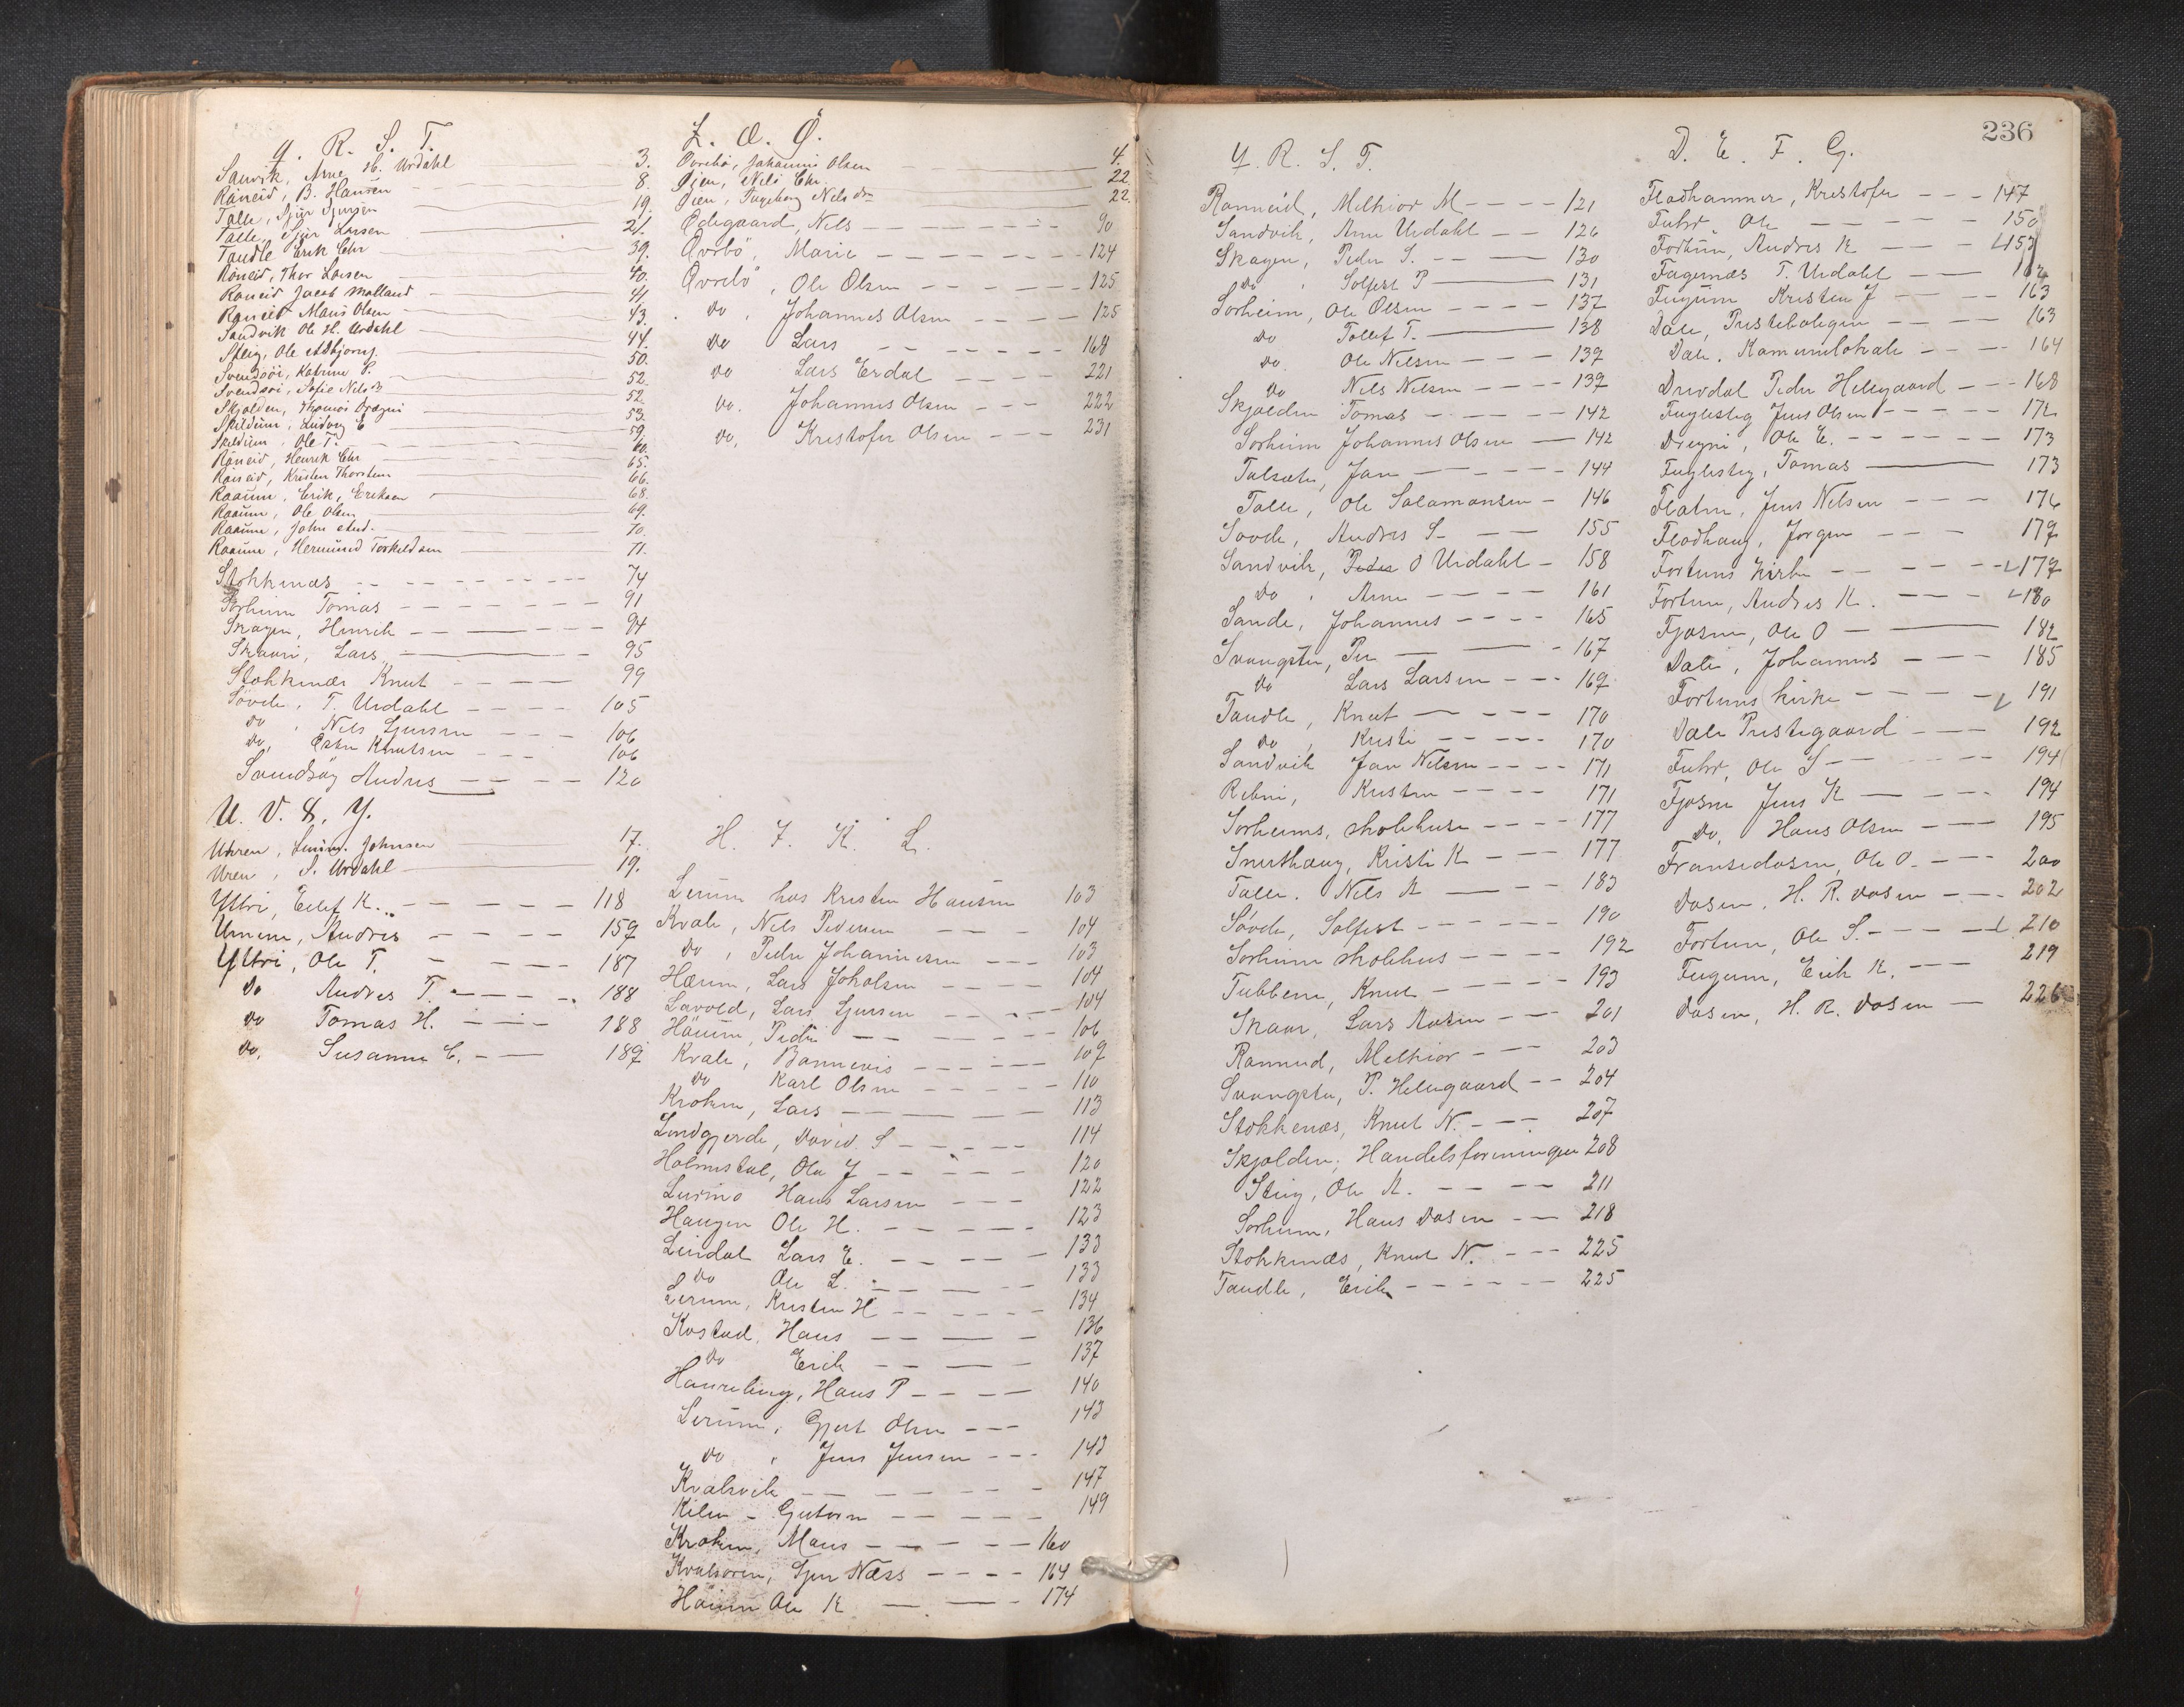 Q. R. S. T.
Sanvik, Arne H. Urdahl 3.
Råneid, B. Hansen 8.
Talle, Sjur Sjursen 19.
Talle, Sjur Larsen 21.
Tandle Erik Chr 39.
Råneid, Thor Larsen 40.
Råneid Jacob Molland 41.
Råneid Måns Olsen 43.
Sandvik Ole H. Urdahl 44.
Steig, Ole Asbjörns. 50.
Svendsöi, Katrine P. 52.
Svendsöi, Sofie Nelsd 52.
Skjolden, Thomas Drægni 53.
Skildum, Ludvig E 59.
Skildum, Ole T. 60.
Råneid, Henrik Chr 65.
Råneid, Kristen Thorsten 66.
Raaum, Erik, Eriksen 68.
Raaum, Ole Olsen 69.
Raaum, John stud. 70.
Raaum, Hermund Torkeldsen 71.
Stokknæs 74
Sørheim Tomas 91
Skagen, Henrik 94
Skaari, Lars 95
Stokknæs Knut 99
Søvde, T. Urdahl 105
do, Nels Sjursen 106
do, Østen Knutsen 106
Svendsøy Andres 120
U. V. X. Y.
Uhren, Enkem. Johnsen 17.
Uren, S. Urdahl 19.
Yttri, Eilef K. 118
Urnem, Andres 159
Yttri, Ole T. 187
do Andres T. 188
do Tomas H. 188
do. Susanne E. 189
Z. Æ. Ø.
Øvrebø, Johannes Olsen 4.
Öien, Nels Chr. 22.
Öien, Ingeborg Nelsdr 22.
Ødegaard, Nels 90
Øvrbö, Marie 124
Øvrebö, Ole Olsen 125
do, Johannes Olsen 125
do Lars 168
do Lars Erdal 221
do. Johannes Olsen 222
do, Kristofer Olsen 231
H. I. K. L.
Lerum hos Kristen Hansen 103
Kvale, Nels Pedersen 104
do, Peder Johannesen 103
Hærum, Lars Joholsen 104
Lavold, Lars Sjursen 104
Håum, Peder 106
Kvale, Bannevis 109
do Karl Olsen 110
Kroken, Lars 113
Lindgjerde, David S 114
Holmstal, Ola J 120
Luring Hans Larsen 122
Haugen Ole H. 123
Lindal Lars E. 133
do Ole L. 133
Lerum, Kristen H 134
Kostad, Hans 136
do Erik 137
Haureberg, Hans P 140
Lerum, Gjert Olsen 143
do, Jens Jensen 143
Kvalsvik 147
Kilen Guttorm 149
Kroken, Mons 160
Kvalsoren, Sjur Næss 164
Håum Ole K 174
Q. R. S. T.
Ranneid, Melkior M 121
Sandvik, Arne Urdahl 126
Skagen, Peder S. 130
do, Solfest P 131
Sorheim, Ole Olsen 137
do Tollef T. 138
do Ole Nelsen 139
do Nels Nelsen 139
Skjolden Tomas 142
Sorheim Johannes Olsen 142
Talsæte, Jan 144
Talle, Ole Salamonsen 146
Sovde, Andres S 155
Sandvik, Peder O Urdahl 158
do, Arne 161
Sande, Johannes 165
Svangstu, Per 167
do Lars Larsen 169
Tandle, Knut 170
do, Kristi 170
Sandvik Jan Nelsen 171
Rebni, Kristen 171
Sorheims, skolehuse 177
Snerthaug, Kristi K 177
Talle. Nels K 183
Søvde, Solfest 190
Sorheim skolehus 192
Tubbene, Knut 193
Skaar, Lars Aasen 201
Ranneid, Melkior 203
Svangstu, P. Hellegaard 204
Stokkenæs, Knut N. 207
Skjolden, Handelsforeningen 208
Steig, Ole K. 211
Sorheim, Hans Dosen 218
Stokknæs, Knut N. 225
Tandle, Erik 225
236
D. E. F. G.
Flodhammer, Kristofer 147
Fuhr, Ole 150
Fortun, Andres K 153
Fagernæs T. Urdahl 162
Fuglum Kristen J 163
Dale, Prestebolegen 163
Dale, Komunelokale 164
Drivdal Peder Hellegaard 168
Fuglesteg Jens Olsen 172
Drægni, Ole E. 173
Fuglesteg, Tomas 173
Flaten, Jens Nelsen 176
Flodhaug, Jørgen 179
Fortuns Kirke 179
Fortun, Andres K. 180
Fjosne, Ole O 182
Dale, Johannes 185
Fortuns kirke 191
Dale Prestegaard 192
Fuhr, Ole S 194
Fjosne Jens K 194
do, Hans Olsen 195
Fransedosen, Ole O. 200
Dosen, H. R. Dosen 202
Fortun, Ole S. 210
Fuglum, Erik K. 219
Dosen, H. R. Dosen 226